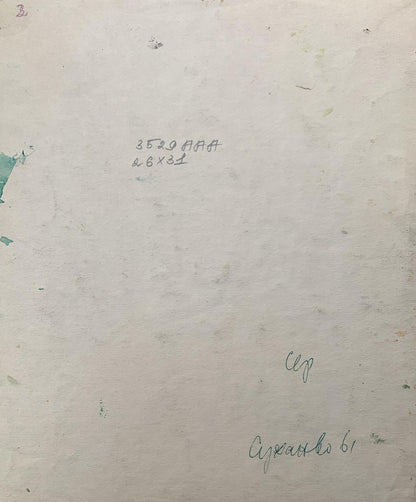 В
3529 ААА
26х31
Сер
Суханово 61